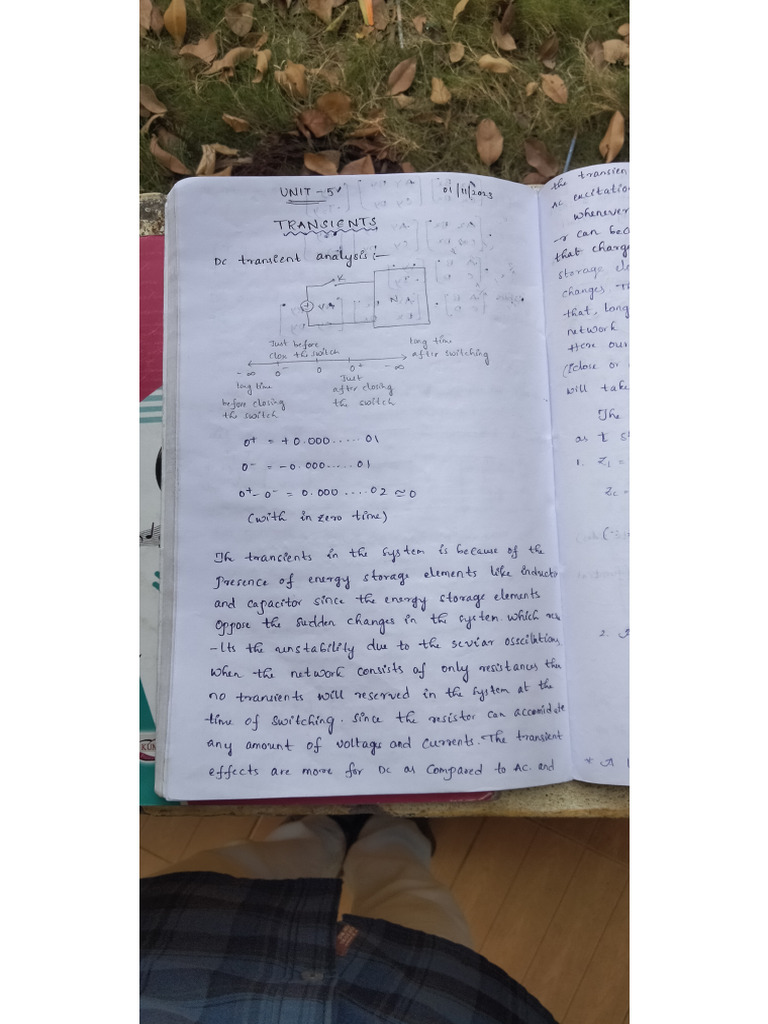 UNIT - 5
01/11/2023
TRANSIENTS
DC transient analysis :-
K
V
N.
Just before
close the switch
long time
after switching
- ∞ 0⁻ 0 0⁺ - ∞
long time
before closing
the switch
Just
after closing
the switch
0⁺ = +0.000.....01
0⁻ = -0.000.....01
0⁺- 0⁻ = 0.000....02 ≈ 0
(with in zero time)
The transients in the system is because of the
presence of energy storage elements like inducto
and capacitor since the energy storage elements
oppose the sudden changes in the system. which resu
-lts the unstability due to the seviar osscilations
when the network consists of only resistances then
no transients will reserved in the system at the
time of switching. since the resistor can accomidate
any amount of voltage and currents. The transient
effects are more for DC as compared to AC. and
the transien
AC excitatio
whenever
-r can bec
that charge
storage ele
changes. Th
that, long
network
Here our
(close or
will take
The
as t s
1. Z₁ =
2.